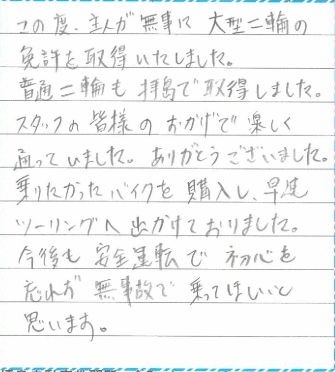 この度、主人が無事に大型二輪の
免許を取得いたしました。
普通二輪も拝島で取得しました。
スタッフの皆様のおかげで楽しく
通っていました。ありがとうございました。
乗りたかったバイクを購入し、早速
ツーリングへ出かけておりました。
今後も安全運転で初心を
忘れず無事故で乗ってほしいと
思います。